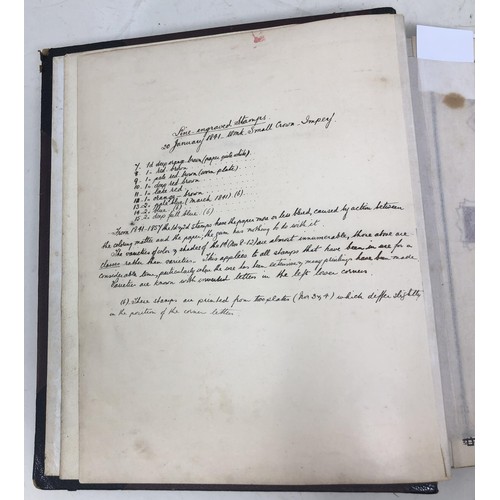 Line-engraved Stamps.
20 January 1841. Wmk Small Crown. Imperf.
7. 1d deep orange brown (paper quite white)
8. 1. red brown
9. 1. pale red brown (worn plate)
10. 1. deep red brown
11. 1. lake red
12. 1. orange brown
13. 2. (March 1841) (b)
14. 2. blue (b)
15. 2. deep full blue (b)
From 1841-1857 the 1d & 2d stamps have the paper more or less blued, caused by action between
the coloring matter and the paper; the gum has nothing to do with it.
The varieties of color & shades of the 1d (Nos 8-12) are almost innumerable, those above are
classes rather than varieties. This applies to all stamps that have been in use for a
considerable time, particularly when the use has been extensive & many printings have been made
Varieties are known with inverted letters in the left lower corners.
(b). These stamps are printed from two plates (Nos 3 & 4) which differ slightly
in the position of the corner letters.